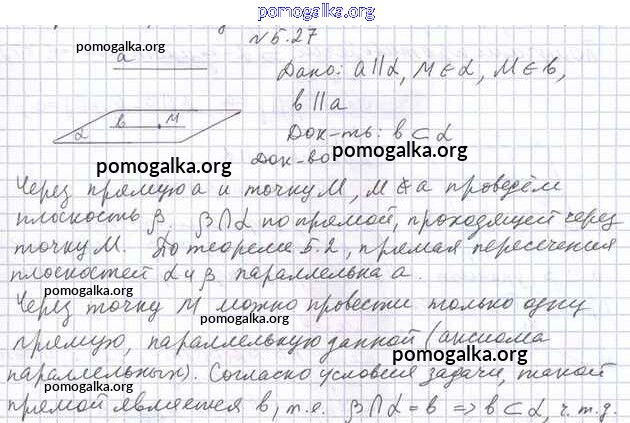 pomogalka.org
№5.27
pomogalka.org
a
Дано: a∥α, M∈α, M∈в,
в∥a
в M
α
Док-ть: в⊂α
pomogalka.org
Док-во
pomogalka.org
Через прямую а и точку M, M∉a проведём
плоскость β. β∩α по прямой, проходящей через
точку M. По теореме 5.2, прямая пересечения
pomogalka.org
плоскостей α и β параллельна а.
pomogalka.org
Через точку M можно провести только одну
pomogalka.org
прямую, параллельную данной (аксиома
pomogalka.org
параллельных). Согласно условия задачи, такой
pomogalka.org
прямой является в, т.е. β∩α = в => в⊂α, ч.т.д.